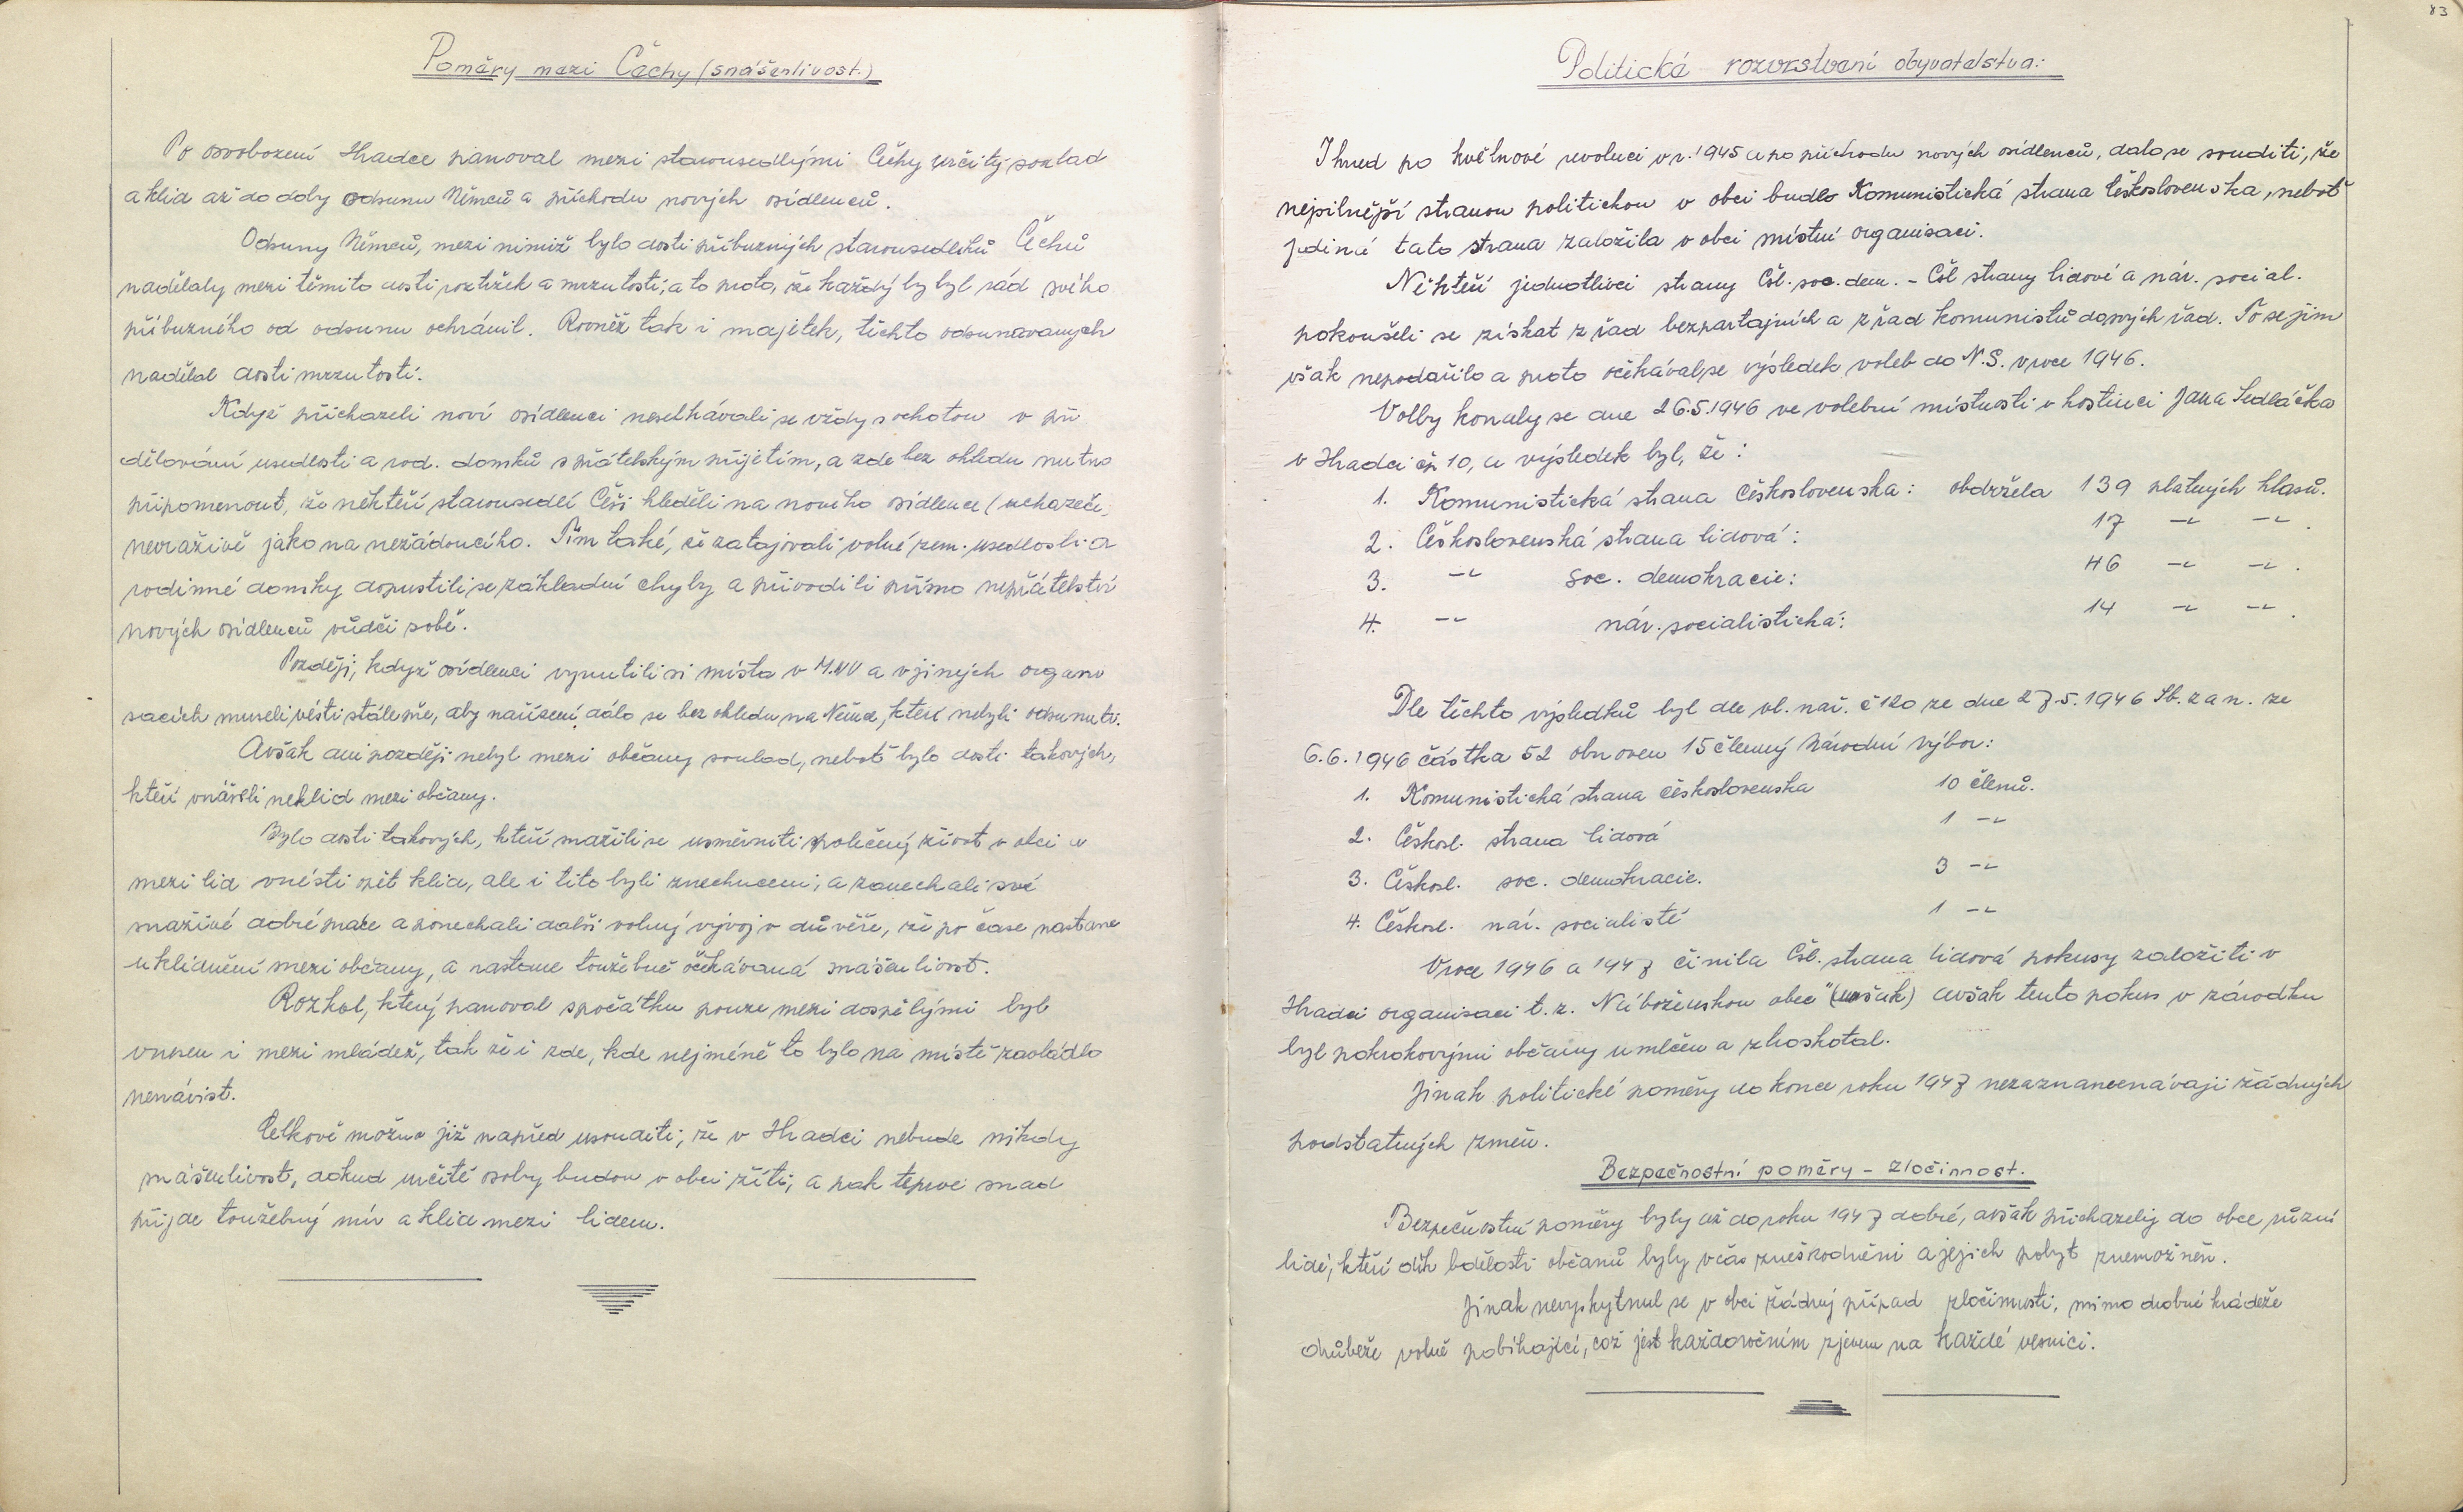 Poměry mezi Čechy (snášenlivost.)
Po osvobození Hradce panoval mezi starousedlými Čechy určitý soulad
a klid až do doby odsunu Němců a příchodu nových osídlenců.
Odsuny Němců, mezi nimiž bylo dosti příbuzných starousedlíků Čechů
nadělaly mezi těmito dosti roztržek a mrzutostí, a to proto, že každý by byl rád svého
příbuzného od odsunu ochránil. Rovněž tak i majetek, těchto odsunavaných
nadělal dosti mrzutostí.
Když přicházeli noví osídlenci neselhávali se vždy s ochotou v při
dělování usedlostí a rod. domků s přátelským přijetím, a zde bez ohledu nutno
připomenout, že někteří starousedlí Češi hleděli na nového osídlence (uchazeče,
nevraživě jako na nežádoucího. Tím také, že zatajovali volné zem. usedlosti a
rodinné domky dopustili se základní chyby a přivodili přímo nepřátelství
nových osídlenců vůdči sobě.
Později, když osídlenci vynutili si místa v M.NV a v jiných organi
sacích museli vésti stále pře, aby nařízení dálo se bez ohledu na Němce, kteří nebyli odsunuti.
Avšak ani později nebyl mezi občany soulad, neboť bylo dosti takových,
kteří vnášeli neklid mezi občany.
Bylo dosti takových, kteří snažili se usměrniti společný život v obci a
mezi lid vnésti opět klid, ale i tito byli znechuceni, a zanechali své
snaživé dobré práce a ponechali další volný vývoj v důvěře, že po čase nastane
uklidnění mezi občany, a nastane toužebně očekávaná snášenlivost.
Rozkol, který panoval spočátku pouze mezi dospělými byl
vnesen i mezi mládež, tak že i zde, kde nejméně to bylo na místě zavládla
nenávist.
Celkově možno již napřed usouditi, že v Hradci nebude nikdy
snášenlivost, dokud určité osoby budou v obci žíti, a pak teprve snad
přijde toužebný mír a klid mezi lidem.
83
Politická rozvrstvení obyvatelstva:
Ihned po květnové revoluci v r. 1945 a po příchodu nových osídlenců, dalo se souditi, že
nejsilnější stranou politickou v obci bude Komunistická strana Československa, neboť
jediná tato strana založila v obci místní organisaci.
Někteří jednotlivci strany Čsl. soc. dem. - Čsl strany lidové a nár. social.
pokoušeli se získat z řad bezpartajních a z řad komunistů do svých řad. To se jim
však nepodařilo a proto očekával se výsledek voleb do N.S. v roce 1946.
Volby konaly se dne 26.5.1946 ve volební místnosti v hostinci Jana Sedláčka
v Hradci čp 10, a výsledek byl, že:
1. Komunistická strana Československa: obdržela 139 platných hlasů.
2. Československá strana lidová: 17 -"- -"-.
3. -"- soc. demokracie: 46 -"- -"-.
4. -"- nár. socialistická: 14 -"- -"-.
Dle těchto výsledků byl dle vl. nař. č 120 ze dne 27.5.1946 Sb. z a n. ze
6.6.1946 částka 52 obnoven 15 členný Národní výbor:
1. Komunistická strana Československa 10 členů.
2. Českosl. strana lidová 1 -"-
3. Českosl. soc. demokracie. 3 -"-
4. Českosl. nár. socialisté 1 -"-
V roce 1946 a 1947 činila Čsl. strana lidová pokusy založiti v
Hradci organisaci t. z. Náboženskou obec" (však) avšak tento pokus v zárodku
byl pokrokovými občany umlčen a zkroskotal.
Jinak politické poměry do konce roku 1947 nezaznamenávají žádných
podstatných změn.
Bezpečnostní poměry - zločinnost.
Bezpečnostní poměry byly až do roku 1947 dobré, avšak přicházely do obce různí
lidé, kteří dík bdělosti občanů byly včas zneškodněni a jejich pobyt znemožněn.
Jinak nevyskytnul se v obci žádný případ zločinnosti, mimo drobné krádeže
drůbeže volně pobíhající, což jest každoročním zjevem na každé vesnici.